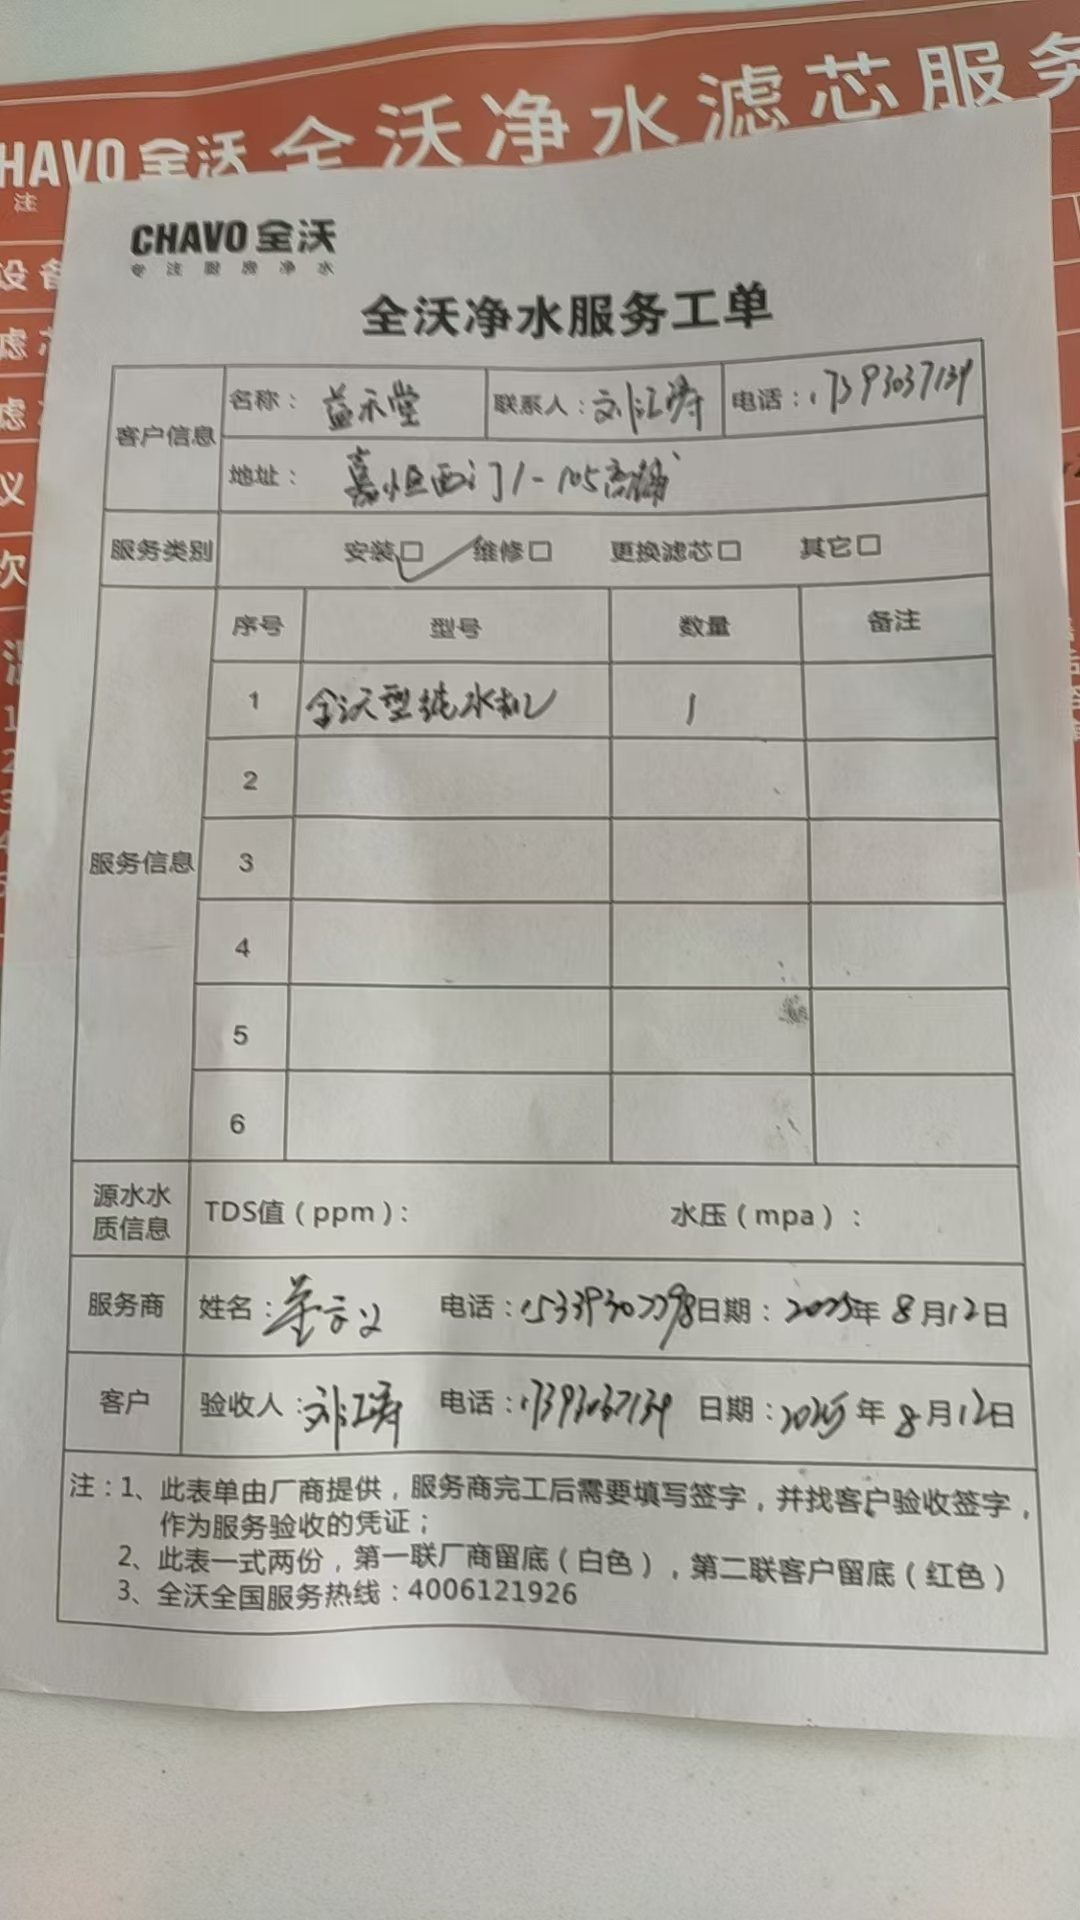 全沃净水滤芯服务
CHAVO 全沃
注
设备
滤芯
滤
议
次
CHAVO 全沃
专注厨房净水
全沃净水服务工单
客户信息 名称： 益禾堂 联系人：刘江涛 电话：17393037139
地址： 嘉恒西门1-105商铺
服务类别 安装□ ✓ 维修□ 更换滤芯□ 其它□
序号 型号 数量 备注
1 全沃型纯水机 1
2
服务信息 3
4
5
6
源水水质信息 TDS值（ppm）： 水压（mpa）：
服务商 姓名： 电话：15339307798 日期：2025年 8月12日
客户 验收人：刘江涛 电话：17393037139 日期：2025年 8月12日
注：1、此表单由厂商提供，服务商完工后需要填写签字，并找客户验收签字，
作为服务验收的凭证；
2、此表一式两份，第一联厂商留底（白色），第二联客户留底（红色）
3、全沃全国服务热线：4006121926